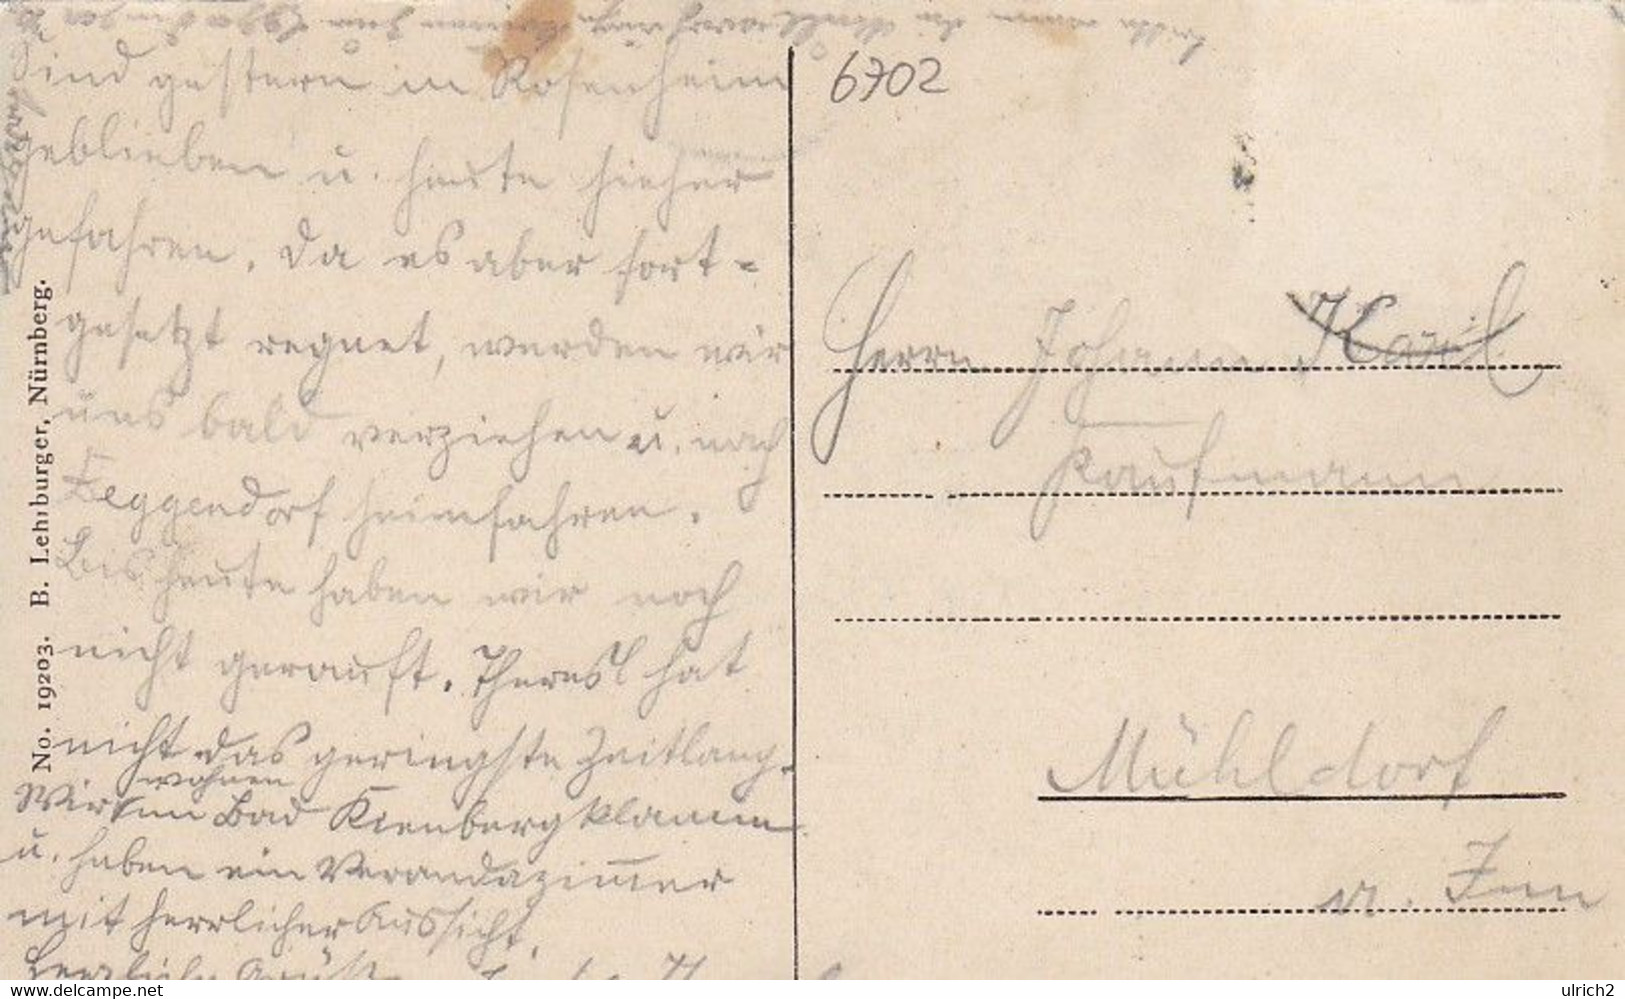 Sind gestern in Rosenheim
geblieben u. heute hieher
gefahren. Da es aber fort=
gesetzt regnet, werden wir
uns bald verziehen u. nach
Deggendorf heimfahren.
Bis heute haben wir noch
nicht gerauft. Theresl hat
nicht das geringste Zeitlang.
wohnen
Wir im Bad Kienbergklamm
u. haben ein Verandazimmer
mit herrlicher Aussicht.
Herzliche Grüße
6702
Herrn Johann
Kaufmann
Mühldorf
a. Inn
No. 19203. B. Lehrburger, Nürnberg.